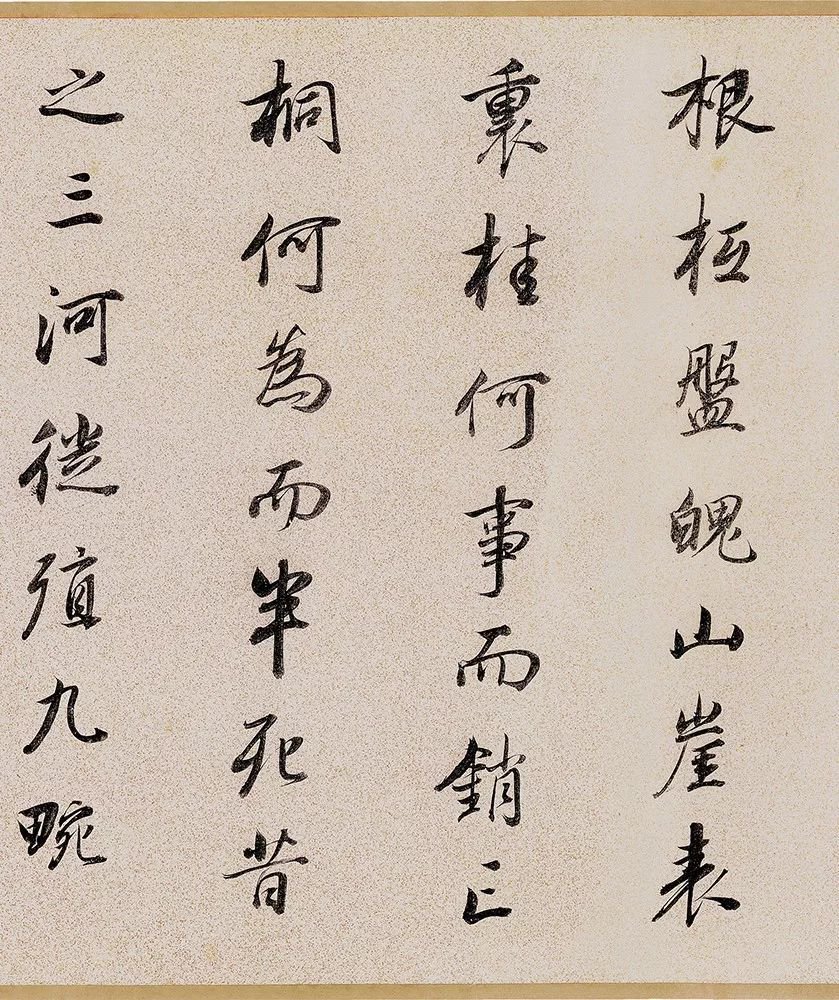 根柢盤魄山崖表
裏桂何事而銷亡
桐何為而半死昔
之三河徙殖九畹